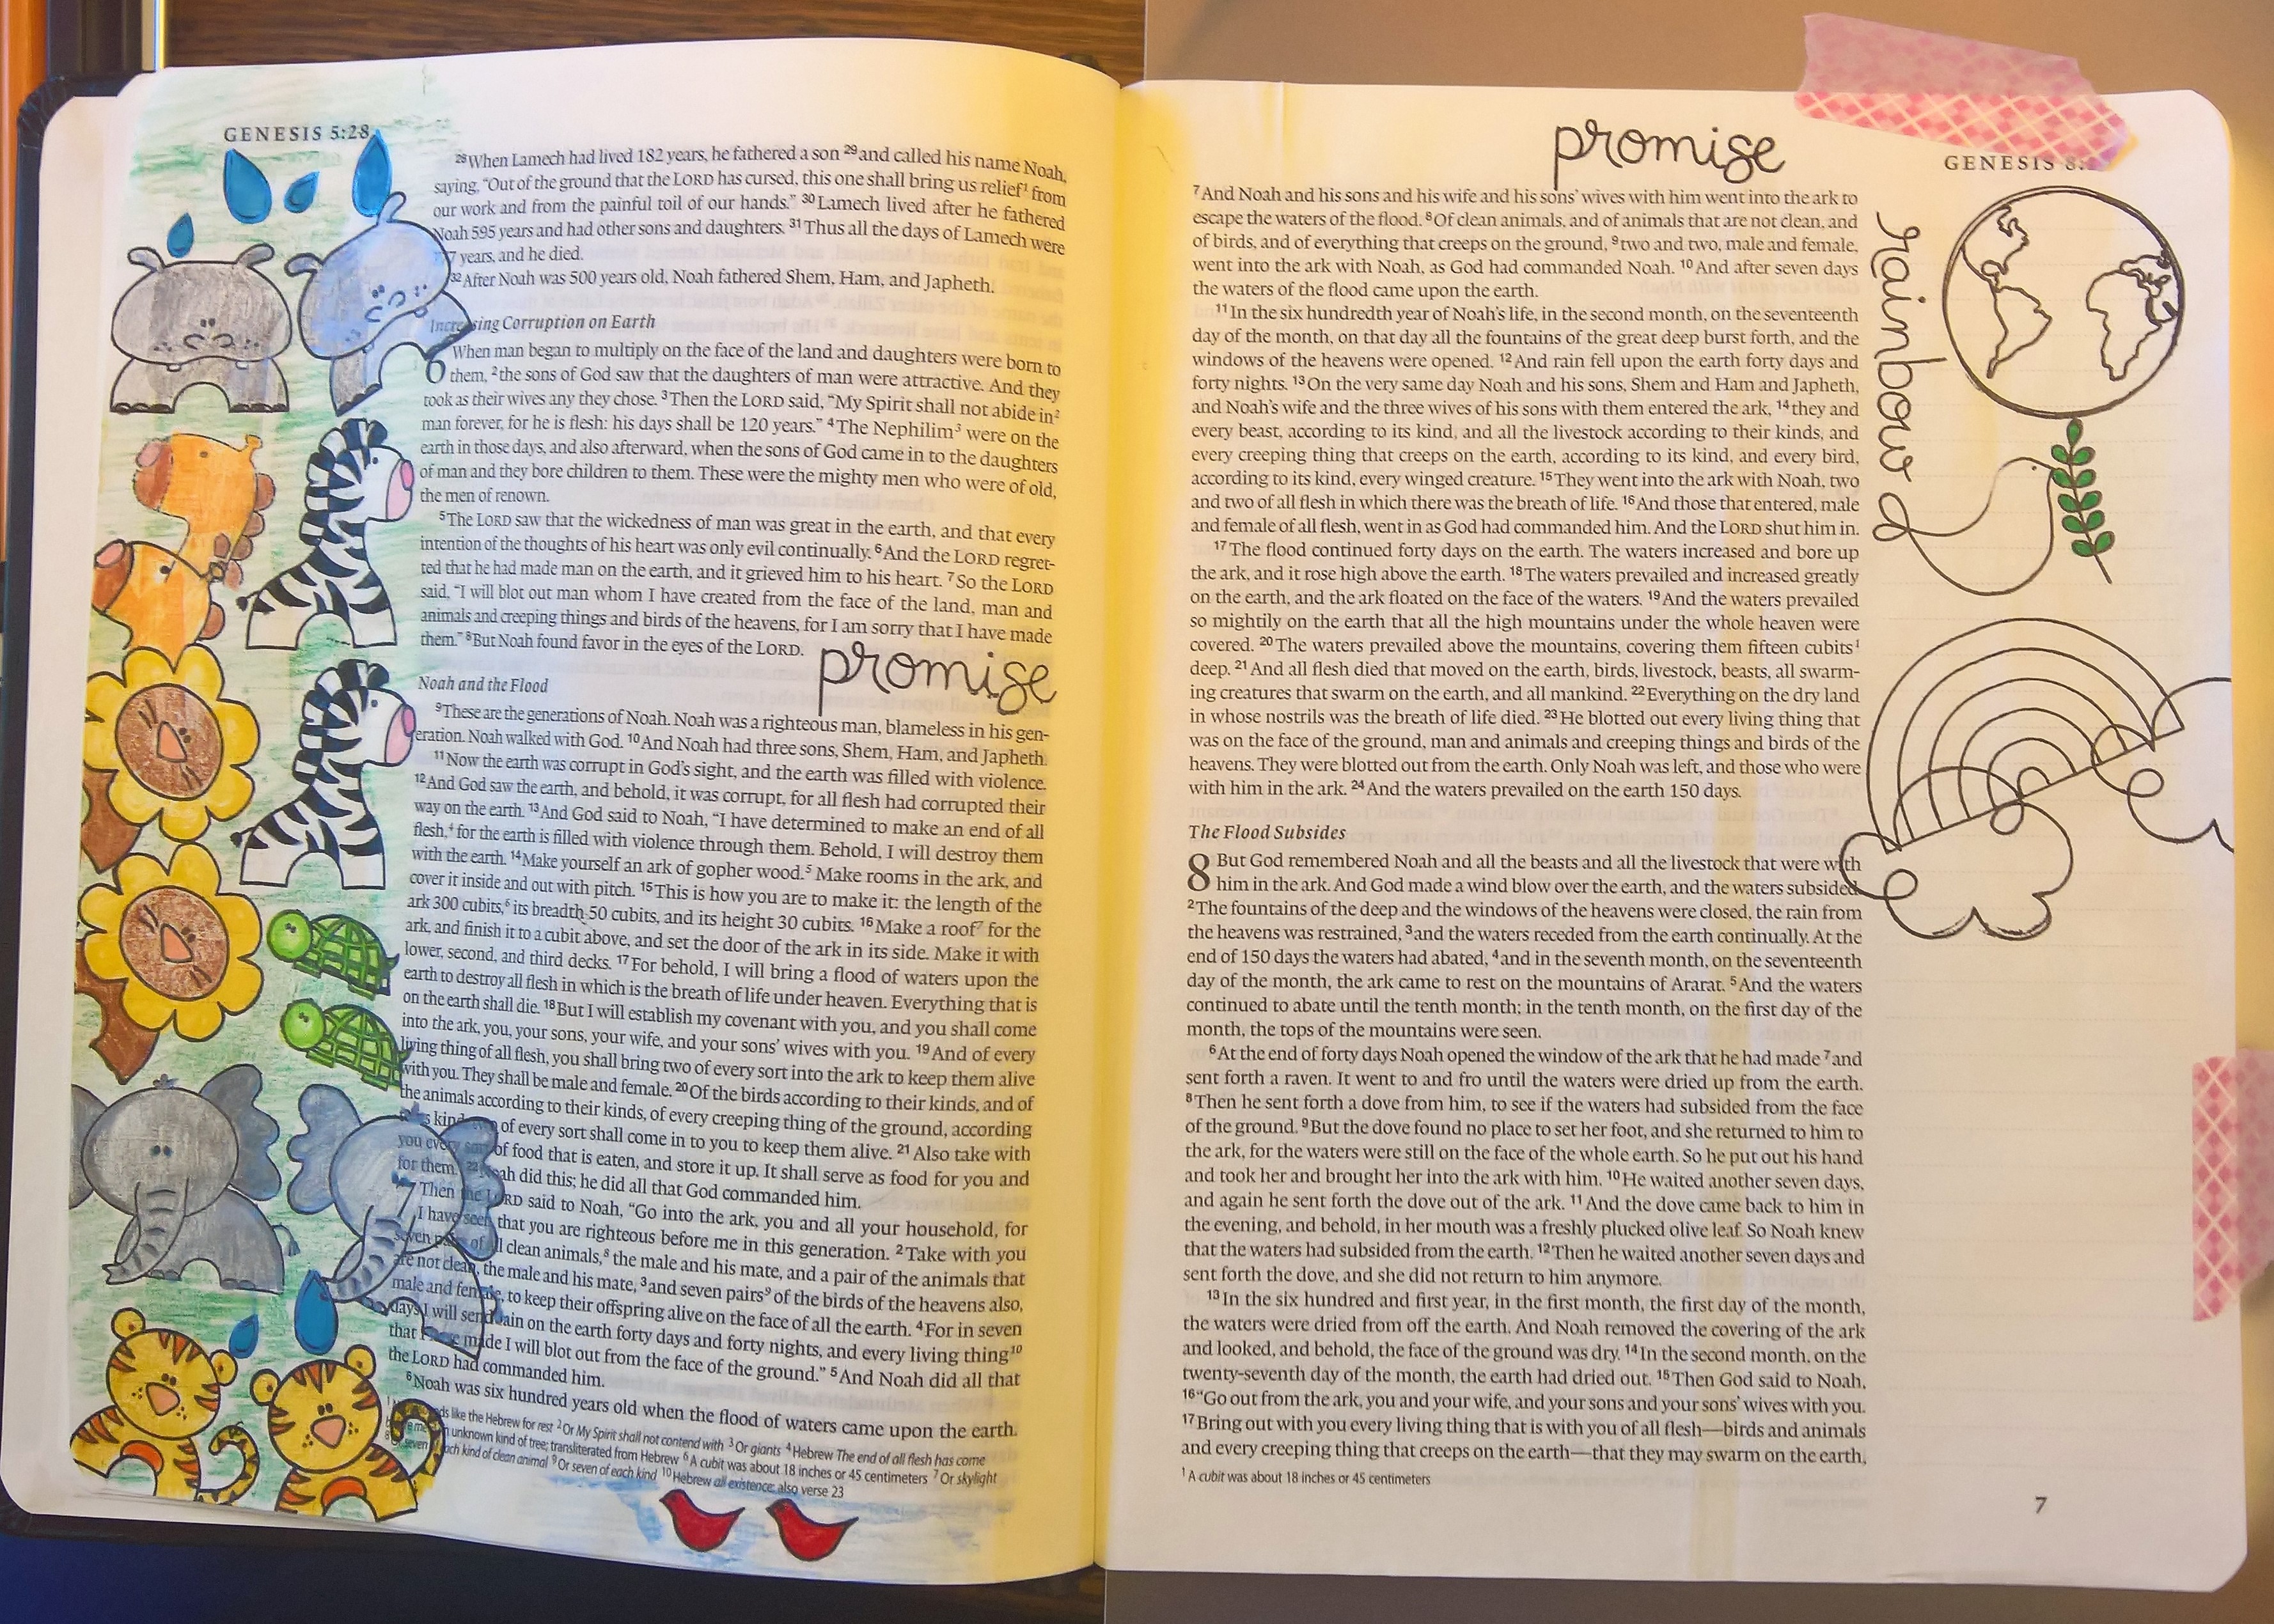 GENESIS 5:28
28 When Lamech had lived 182 years, he fathered a son 29 and called his name Noah,
saying, “Out of the ground that the LORD has cursed, this one shall bring us relief1 from
our work and from the painful toil of our hands.” 30 Lamech lived after he fathered
Noah 595 years and had other sons and daughters. 31 Thus all the days of Lamech were
years, and he died.
32 After Noah was 500 years old, Noah fathered Shem, Ham, and Japheth.
Increasing Corruption on Earth
6 When man began to multiply on the face of the land and daughters were born to
them, 2 the sons of God saw that the daughters of man were attractive. And they
took as their wives any they chose. 3 Then the LORD said, “My Spirit shall not abide in2
man forever, for he is flesh: his days shall be 120 years.” 4 The Nephilim3 were on the
earth in those days, and also afterward, when the sons of God came in to the daughters
of man and they bore children to them. These were the mighty men who were of old,
the men of renown.
5 The LORD saw that the wickedness of man was great in the earth, and that every
intention of the thoughts of his heart was only evil continually. 6 And the LORD regret-
ted that he had made man on the earth, and it grieved him to his heart. 7 So the LORD
said, “I will blot out man whom I have created from the face of the land, man and
animals and creeping things and birds of the heavens, for I am sorry that I have made
them.” 8 But Noah found favor in the eyes of the LORD.
promise
Noah and the Flood
9 These are the generations of Noah. Noah was a righteous man, blameless in his gen-
eration. Noah walked with God. 10 And Noah had three sons, Shem, Ham, and Japheth.
11 Now the earth was corrupt in God’s sight, and the earth was filled with violence.
12 And God saw the earth, and behold, it was corrupt, for all flesh had corrupted their
way on the earth. 13 And God said to Noah, “I have determined to make an end of all
flesh,4 for the earth is filled with violence through them. Behold, I will destroy them
with the earth. 14 Make yourself an ark of gopher wood.5 Make rooms in the ark, and
cover it inside and out with pitch. 15 This is how you are to make it: the length of the
ark 300 cubits,6 its breadth 50 cubits, and its height 30 cubits. 16 Make a roof7 for the
ark, and finish it to a cubit above, and set the door of the ark in its side. Make it with
lower, second, and third decks. 17 For behold, I will bring a flood of waters upon the
earth to destroy all flesh in which is the breath of life under heaven. Everything that is
on the earth shall die. 18 But I will establish my covenant with you, and you shall come
into the ark, you, your sons, your wife, and your sons’ wives with you. 19 And of every
living thing of all flesh, you shall bring two of every sort into the ark to keep them alive
with you. They shall be male and female. 20 Of the birds according to their kinds, and of
the animals according to their kinds, of every creeping thing of the ground, according
to its kind, two of every sort shall come in to you to keep them alive. 21 Also take with
you every sort of food that is eaten, and store it up. It shall serve as food for you and
for them.” 22 Noah did this; he did all that God commanded him.
7 Then the LORD said to Noah, “Go into the ark, you and all your household, for
I have seen that you are righteous before me in this generation. 2 Take with you
seven pairs of all clean animals,8 the male and his mate, and a pair of the animals that
are not clean, the male and his mate, 3 and seven pairs9 of the birds of the heavens also,
male and female, to keep their offspring alive on the face of all the earth. 4 For in seven
days I will send rain on the earth forty days and forty nights, and every living thing10
that I have made I will blot out from the face of the ground.” 5 And Noah did all that
the LORD had commanded him.
6 Noah was six hundred years old when the flood of waters came upon the earth.
1 like the Hebrew for rest 2 Or My Spirit shall not contend with 3 Or giants 4 Hebrew The end of all flesh has come
unknown kind of tree; transliterated from Hebrew 6 A cubit was about 18 inches or 45 centimeters 7 Or skylight
8 Or seven of each kind of clean animal 9 Or seven of each kind 10 Hebrew all existence; also verse 23
promise
GENESIS
7 And Noah and his sons and his wife and his sons’ wives with him went into the ark to
escape the waters of the flood. 8 Of clean animals, and of animals that are not clean, and
of birds, and of everything that creeps on the ground, 9 two and two, male and female,
went into the ark with Noah, as God had commanded Noah. 10 And after seven days
the waters of the flood came upon the earth.
11 In the six hundredth year of Noah’s life, in the second month, on the seventeenth
day of the month, on that day all the fountains of the great deep burst forth, and the
windows of the heavens were opened. 12 And rain fell upon the earth forty days and
forty nights. 13 On the very same day Noah and his sons, Shem and Ham and Japheth,
and Noah’s wife and the three wives of his sons with them entered the ark, 14 they and
every beast, according to its kind, and all the livestock according to their kinds, and
every creeping thing that creeps on the earth, according to its kind, and every bird,
according to its kind, every winged creature. 15 They went into the ark with Noah, two
and two of all flesh in which there was the breath of life. 16 And those that entered, male
and female of all flesh, went in as God had commanded him. And the LORD shut him in.
17 The flood continued forty days on the earth. The waters increased and bore up
the ark, and it rose high above the earth. 18 The waters prevailed and increased greatly
on the earth, and the ark floated on the face of the waters. 19 And the waters prevailed
so mightily on the earth that all the high mountains under the whole heaven were
covered. 20 The waters prevailed above the mountains, covering them fifteen cubits1
deep. 21 And all flesh died that moved on the earth, birds, livestock, beasts, all swarm-
ing creatures that swarm on the earth, and all mankind. 22 Everything on the dry land
in whose nostrils was the breath of life died. 23 He blotted out every living thing that
was on the face of the ground, man and animals and creeping things and birds of the
heavens. They were blotted out from the earth. Only Noah was left, and those who were
with him in the ark. 24 And the waters prevailed on the earth 150 days.
The Flood Subsides
8 But God remembered Noah and all the beasts and all the livestock that were with
him in the ark. And God made a wind blow over the earth, and the waters subsided.
2 The fountains of the deep and the windows of the heavens were closed, the rain from
the heavens was restrained, 3 and the waters receded from the earth continually. At the
end of 150 days the waters had abated, 4 and in the seventh month, on the seventeenth
day of the month, the ark came to rest on the mountains of Ararat. 5 And the waters
continued to abate until the tenth month; in the tenth month, on the first day of the
month, the tops of the mountains were seen.
6 At the end of forty days Noah opened the window of the ark that he had made 7 and
sent forth a raven. It went to and fro until the waters were dried up from the earth.
8 Then he sent forth a dove from him, to see if the waters had subsided from the face
of the ground. 9 But the dove found no place to set her foot, and she returned to him to
the ark, for the waters were still on the face of the whole earth. So he put out his hand
and took her and brought her into the ark with him. 10 He waited another seven days,
and again he sent forth the dove out of the ark. 11 And the dove came back to him in
the evening, and behold, in her mouth was a freshly plucked olive leaf. So Noah knew
that the waters had subsided from the earth. 12 Then he waited another seven days and
sent forth the dove, and she did not return to him anymore.
13 In the six hundred and first year, in the first month, the first day of the month,
the waters were dried from off the earth. And Noah removed the covering of the ark
and looked, and behold, the face of the ground was dry. 14 In the second month, on the
twenty-seventh day of the month, the earth had dried out. 15 Then God said to Noah,
16 “Go out from the ark, you and your wife, and your sons and your sons’ wives with you.
17 Bring out with you every living thing that is with you of all flesh—birds and animals
and every creeping thing that creeps on the earth—that they may swarm on the earth,
1 A cubit was about 18 inches or 45 centimeters
rainbow
7